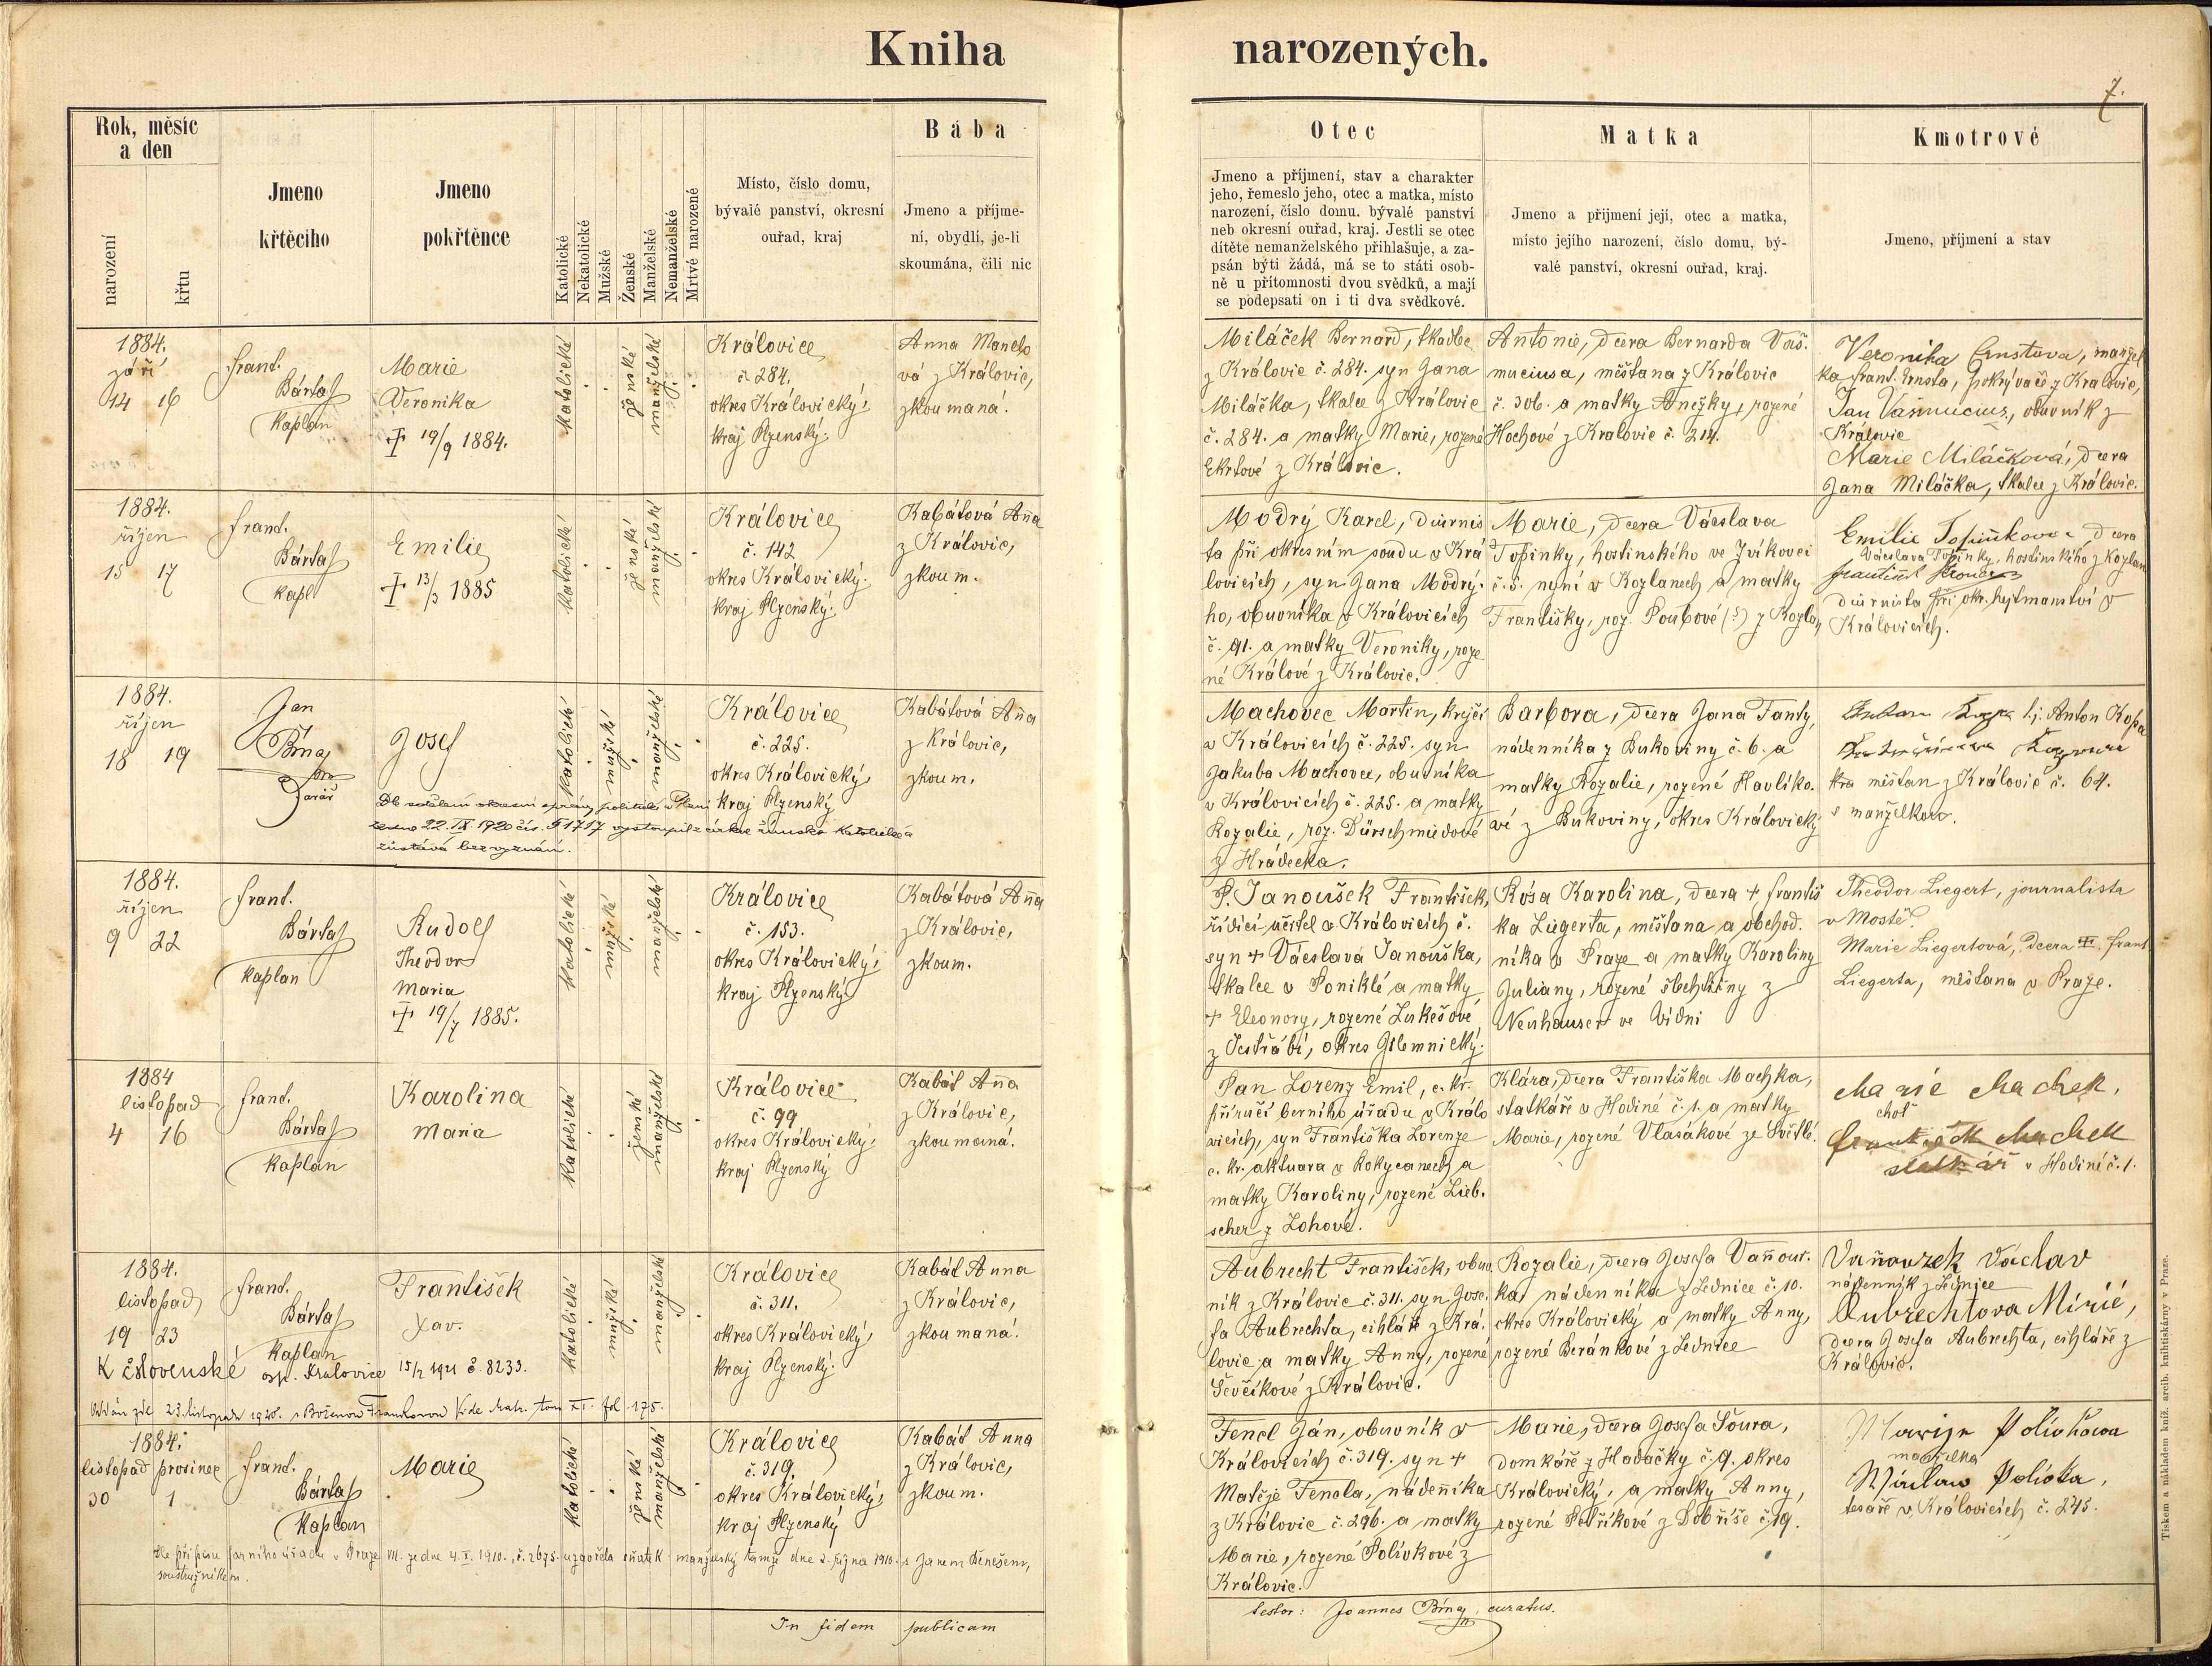 Kniha narozených.
7.
Rok, měsíc
a den
narození
křtu
Jmeno
křtěcího
Jmeno
pokřtěnce
Katolické
Nekatolické
Mužské
Ženské
Manželské
Nemanželské
Mrtvé narozené
Místo, číslo domu,
bývalé panství, okresní
ouřad, kraj
Bába
Jmeno a příjme-
ní, obydlí, je-li
skoumána, čili nic
Otec
Jmeno a příjmení, stav a charakter
jeho, řemeslo jeho, otec a matka, místo
narození, číslo domu, bývalé panství
neb okresní ouřad, kraj. Jestli se otec
dítěte nemanželského přihlašuje, a za-
psán býti žádá, má se to státi osob-
ně u přítomnosti dvou svědků, a mají
se podepsati on i ti dva svědkové.
Matka
Jmeno a příjmení její, otec a matka,
místo jejího narození, číslo domu, bý-
valé panství, okresní ouřad, kraj.
Kmotrové
Jmeno, příjmení a stav
1884.
září
14 16
Frant.
Bártas
kaplan
Marie
Veronika
19/9 1884.
katolické
ženské
manželské
Královice
č. 284.
okres Královický,
kraj Plzenský.
Anna Manelo
vá z Královic,
zkoumaná.
Miláček Bernard, tkadlec
z Královic č. 284. syn Jana
Miláčka, tkalce z Královic
č. 284. a matky Marie, rozené
Ekrtové z Královic.
Antonie, dcera Bernarda Vaš.
muciusa, měšťana z Královic
č. 306. a matky Anežky, rozené
Hochové z Kralovic č. 214.
Veronika Ernstova, manžel
ka Frant. Ernsta, pokrývače z Kralovic,
Jan Vašmucius, obuvník z
Královic
Marie Miláčková, dcera
Jana Miláčka, tkalce z Královic.
1884.
říjen
15 17
Frant.
Bártas
kapl.
Emilie
13/3 1885
katolické
ženské
manželské
Královice
č. 142
okres Královický.
kraj Plzenský.
Kabátová Aña
z Královic,
zkoum.
Modrý Karel, diurnis
ta při okresním soudu v Krá
lovicích, syn Jana Modrý.
ho, obuvníka v Královicích
č. 91. a matky Veroniky, roze
né Králové z Královic.
Marie, dcera Václava
Topinky, hostinského ve Zvíkovci
č. 5. nyní v Kozlanech a matky
Františky, roz. Poubové (?) z Kozlan
Emilie Topinkova, dcera
Václava Topinky, hostinského z Kozlan
František
diurnista při okr. hejtmanství v
Královicích.
1884.
říjen
18 19
Jan
Brnaj
farář
Josef
katolické
mužské
manželské
Dle sdělení okresní správy politické v Plzni
ze dne 22. IX 1920 čís. 51717 vystoupil z církve římsko katolické a
zůstává bez vyznání.
Královice
č. 225.
okres Královický,
kraj Plzenský
Kabátová Aña
z Královic,
zkoum.
Machovec Martin, krejčí
v Královicích č. 225. syn
Jakuba Machovce, obuvníka
v Královicích č. 225. a matky
Rozalie, roz. Dürschmiedové
z Hrádecka.
Barbora, dcera Jana Fanty,
nádenníka z Bukoviny č. 6. a
matky Rozalie, rozené Havlíko.
vé z Bukoviny, okres Královický
tj. Anton Kopa
měšťan z Královic č. 64.
s manželkou.
1884.
říjen
9 22
Frant.
Bártas
kaplan
Rudolf
Theodor
Maria
19/7 1885.
katolické
mužské
manželské
Královice
č. 153.
okres Královický,
kraj Plzenský.
Kabátová Aña
z Královic,
zkoum.
P. Janoušek František,
řídící učitel v Královicích č.
syn + Václava Janouška,
tkalce v Poniklé a matky
+ Eleonory, rozené Lukešové
z Jestřabí, okres Gilemnický.
Rosa Karolina, dcera + Františ
ka Liegerta, měšťana a obchod.
níka v Praze a matky Karoliny
Juliany, rozené šlechtičny z
Neuhauser ve Vídni
Theodor Liegert, journalista
v Mostě.
Marie Liegertová, dcera Frant.
Liegerta, měšťana v Praze.
1884
listopad
4 16
Frant.
Bártas
kaplán
Karolina
Maria
katolické
ženské
manželské
Královice
č. 99
okres Královický,
kraj Plzenský
Kabát Aña
z Královic,
zkoumaná.
Pan Lorenz Emil, c. kr.
příručí berního úřadu v Králo
vicích, syn Františka Lorenze
c. kr. aktuara v Rokycanech a
matky Karoliny, rozené Lieb.
scher z Lohové.
Klára, dcera Františka Machka,
statkáře v Hodině č. 1. a matky
Marie, rozené Vlasákové ze Světlé.
Marie Machek,
choť
František Machek
statkář v Hodině č. 1.
1884.
listopad
19 23
Frant.
Bártas
kaplan
František
Xav.
katolické
mužské
manželské
K čslovenské osp. Kralovice 15/2 1921 č 8233.
Oddán zde 23. listopadu 1920. s Boženou Frankovou Vide Matr. tom XI. fol 175.
Královice
č. 311.
okres Královický,
kraj Plzenský.
Kabát Anna
z Královic,
zkoumaná.
Aubrecht František, obuv.
ník z Královic č. 311. syn Jose.
fa Aubrechta, cihláře z Krá.
lovic a matky Anny, rozené
Ševčíkové z Královic.
Rozalie, dcera Josefa Vaňour.
ka, nádenníka z Lednice č. 10.
okres Královický a matky Anny,
rozené Beránkové z Lednice
Vaňourek Václav
nádenník z Lednice
Aubrechtova Marie,
dcera Josefa Aubrechta, cihláře z
Královic.
1884.
listopad prosinec
30 1
Frant.
Bártas
kaplan
Marie
katolické
ženské
manželské
Dle přípisu farního úřadu v Praze VII. ze dne 4. X. 1910., č. 2675. uzavřela sňatek manželský tamže dne 2. října 1910. s Janem Benešem,
soustružníkem.
Královice
č. 319.
okres Královický,
kraj Plzenský
Kabát Anna
z Královic,
zkoum.
Fencl Ján, obuvník v
Královicích č. 319. syn +
Matěje Fencla, nádeñíka
z Královic č. 296. a matky
Marie, rozené Polívkové z
Královic.
Marie, dcera Josefa Šoura,
domkáře z Hadačky č. 9. okres
Královický, a matky Anny,
rozené Petříkové z Dobříše č. 19.
Marije Polivkova
manželka
Václav Polívka,
tesaře v Královicích č. 245.
In fidem publicam
testor: Joannes Brnaj, curatus.
Tiskem a nákladem kníž. arcib. knihtiskárny v Praze.